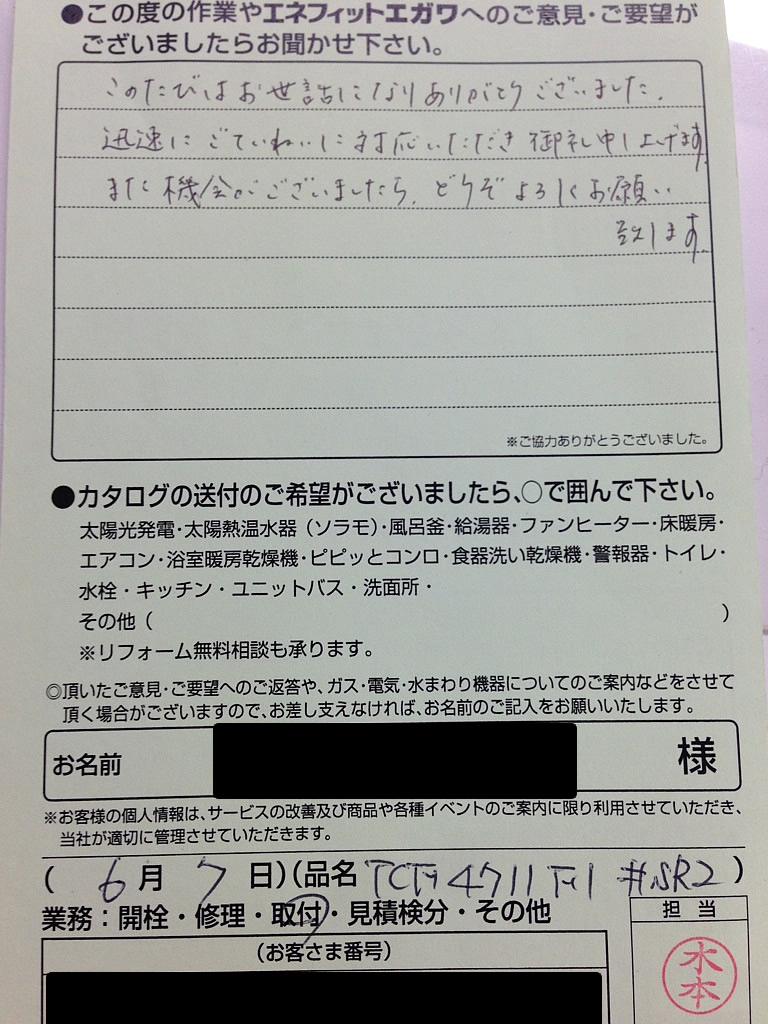 ●この度の作業やエネフィットエガワへのご意見・ご要望が
ございましたらお聞かせ下さい。
このたびはお世話になりありがとうございました。
迅速にごていねいに対応いただき御礼申し上げます。
また機会がございましたら、どうぞよろしくお願い
致します。
※ご協力ありがとうございました。
●カタログの送付のご希望がございましたら、○で囲んで下さい。
太陽光発電・太陽熱温水器(ソラモ)・風呂釜・給湯器・ファンヒーター・床暖房・
エアコン・浴室暖房乾燥機・ピピッとコンロ・食器洗い乾燥機・警報器・トイレ・
水栓・キッチン・ユニットバス・洗面所・
その他( )
※リフォーム無料相談も承ります。
◎頂いたご意見・ご要望へのご返答や、ガス・電気・水まわり機器についてのご案内などをさせて
頂く場合がございますので、お差し支えなければ、お名前のご記入をお願いいたします。
お名前 様
※お客様の個人情報は、サービスの改善及び商品や各種イベントのご案内に限り利用させていただき、
当社が適切に管理させていただきます。
(6月7日)(品名 #SR2)
業務:開栓・修理・取付・見積検分・その他
担当
(お客さま番号)
水本